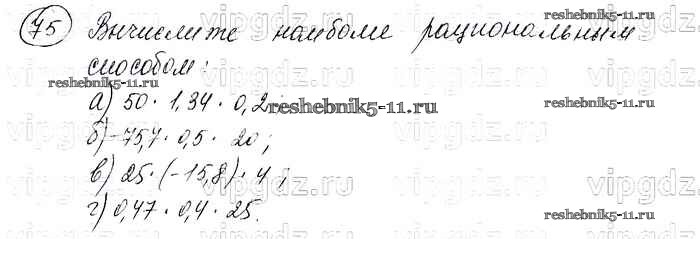 75 Вычислите наиболе рациональным
способом:
а) 50 · 1,34 · 0,2;
б) -75,7 · 0,5 · 20;
в) 25 · (-15,8) · 4;
г) 0,47 · 0,4 · 25.
reshebnik5-11.ru
reshebnik5-11.ru
reshebnik5-11.ru
vipgdz.ru